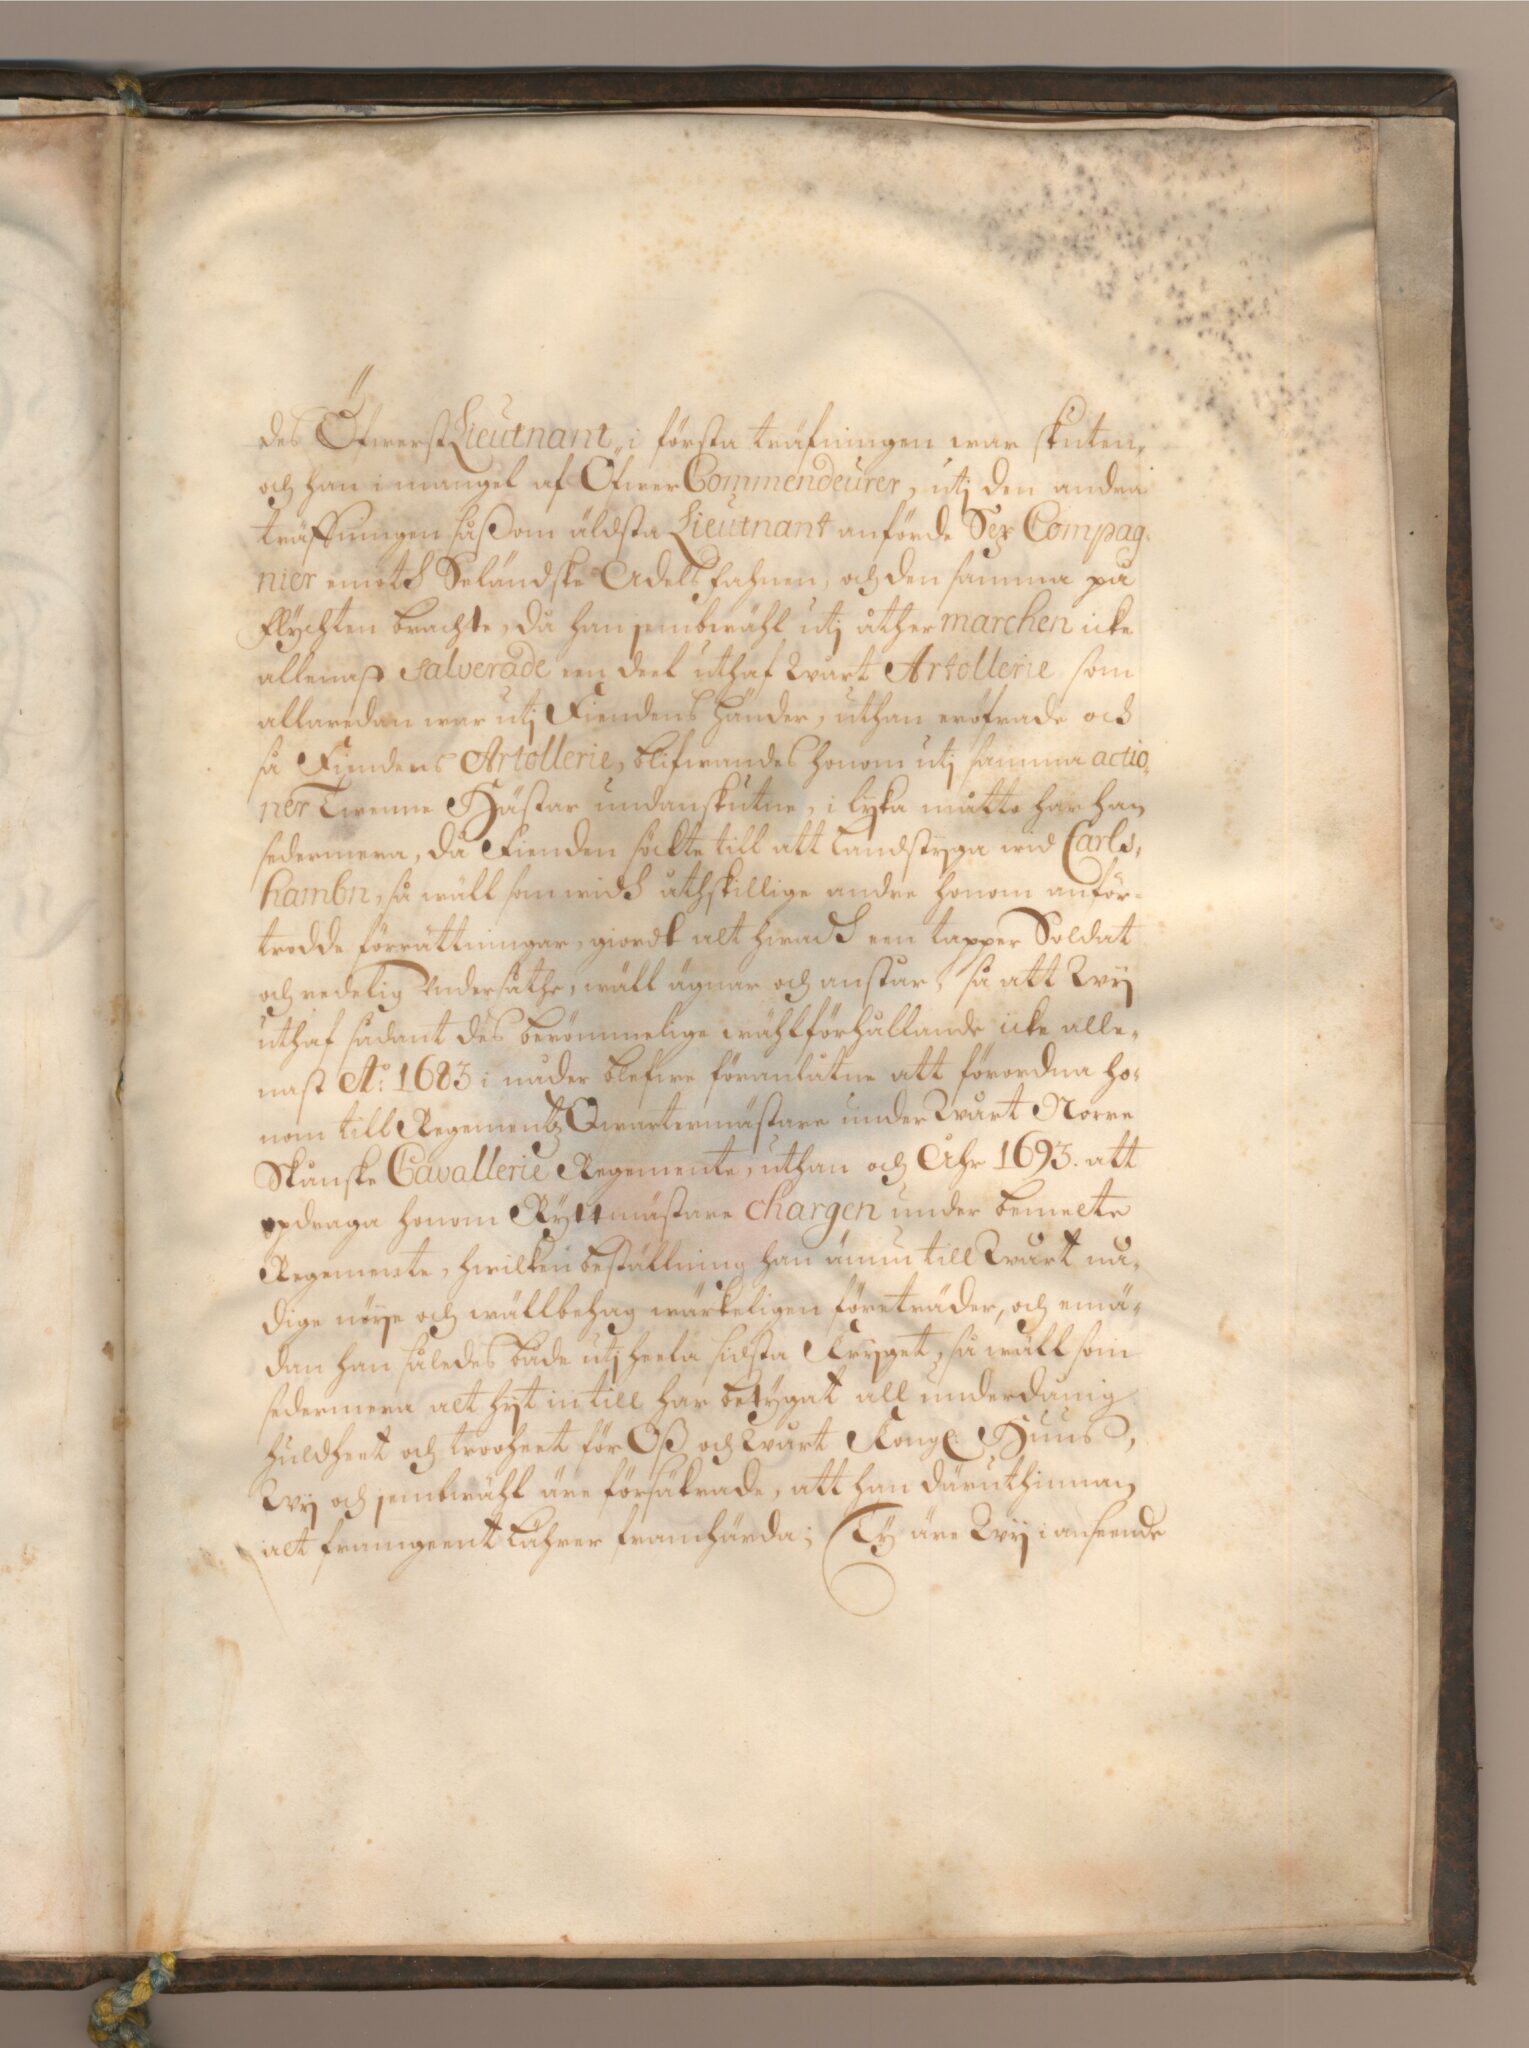 des ÖfwerstLieutnant, i första träfningen war skuten,
och han i mangel af ÖfwerCommendeurer, utj den andra
träffningen såßom äldsta Lieutnant anförde Sex Compag-
nier emoth Seländske Adels fahnen, och den samma på
flychten brachte, då han jembwähl utj åther marchen icke
allenast salverade een deel uthaf Wårt Artollerie som
allaredan war utj Fiendens händer, uthan eröfrade och
så Fiendens Artollerie, blifwandes honom utj samma actio-
ner Twenne Hästar undanskutne, i lyka måtto har han
sedermera, då Fienden sökte till att landstyga wid Carls-
hambn, så wäll som widh åthskillige andre honom anför-
trodde förrättningar, giordt alt hwadh een tapper Soldat
och redelig Undersåthe, wäll ägnar och anstår, så att Wij
uthaf sådant des berömmelige wählförhållande icke alle-
nast A:o 1683 i nåder blefwe föranlåtne att förordna ho-
nom till Regementz Qwartermästare under Wårt Norre
Skånske Cavallerie Regemente, uthan och Åhr 1693. att
opdraga honom Ryttmästare chargen under bemelte
Regemente, hwilken beställning han ännu till Wårt nå-
dige nöije och wällbehag wärkeligen företräder, och emä-
dan han således både utj heela sidsta Kryget, så wäll som
sedermera alt hyt in till har betygat all underdånig
huldheet och trooheet för Oß och Wårt Kongl. Huus,
Wij och jembwähl äre försäkrade, att han däruthinnan
alt framgeent lährer framhärda; Ty äre Wij i anseende